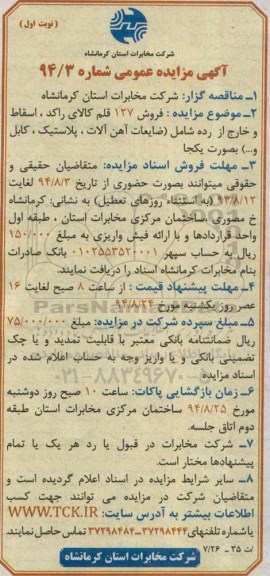 (نوبت اول)
شرکت مخابرات استان کرمانشاه
آگهی مزایده عمومی شماره ۹۴/۳
۱ـ مناقصه گزار: شرکت مخابرات استان کرمانشاه
۲ـ موضوع مزایده: فروش ۱۲۷ قلم کالای راکد، اسقاط
و خارج از رده شامل (ضایعات آهن آلات، پلاستیک، کابل
و...) بصورت یکجا
۳ـ مهلت فروش اسناد مزایده: متقاضیان حقیقی و
حقوقی میتوانند بصورت حضوری از تاریخ ۹۴/۸/۳ لغایت
۹۴/۸/۱۳ (به استثناء روزهای تعطیل) به نشانی: کرمانشاه
خ مصوری، ساختمان مرکزی مخابرات استان، طبقه اول
واحد قراردادها و با ارائه فیش واریزی به مبلغ ۱۵۰/۰۰۰
ریال به حساب سپهر ۰۱۰۲۵۵۳۵۲۰۰۰۱ بانک صادرات
بنام مخابرات کرمانشاه اسناد را دریافت نمایند.
۴ـ مهلت پیشنهاد قیمت: از ساعت ۸ صبح لغایت ۱۶
عصر روز یکشنبه مورخ ۹۴/۸/۲۴
۵ـ مبلغ سپرده شرکت در مزایده: مبلغ ۷۵/۰۰۰/۰۰۰
ریال ضمانتنامه بانکی معتبر با قابلیت تمدید و یا چک
تضمینی بانکی و یا واریز وجه به حساب اعلام شده در
اسناد مزایده
۶ـ زمان بازگشایی پاکات: ساعت ۱۰ صبح روز دوشنبه
مورخ ۹۴/۸/۲۵ ساختمان مرکزی مخابرات استان طبقه
دوم اتاق جلسه.
۷ـ شرکت مخابرات در قبول یا رد هر یک یا تمام
پیشنهادها مختار است.
۸ـ سایر شرایط مزایده در اسناد اعلام گردیده است و
متقاضیان شرکت در مزایده می توانند جهت کسب
اطلاعات بیشتر به آدرس سایت: WWW.TCK.IR
یا شماره تلفنهای ۳۷۲۹۸۴۴۴-۳۷۲۹۸۴۸۲ تماس حاصل نمایند.
ت ۳۵ - ۷/۲۶
شرکت مخابرات استان کرمانشاه